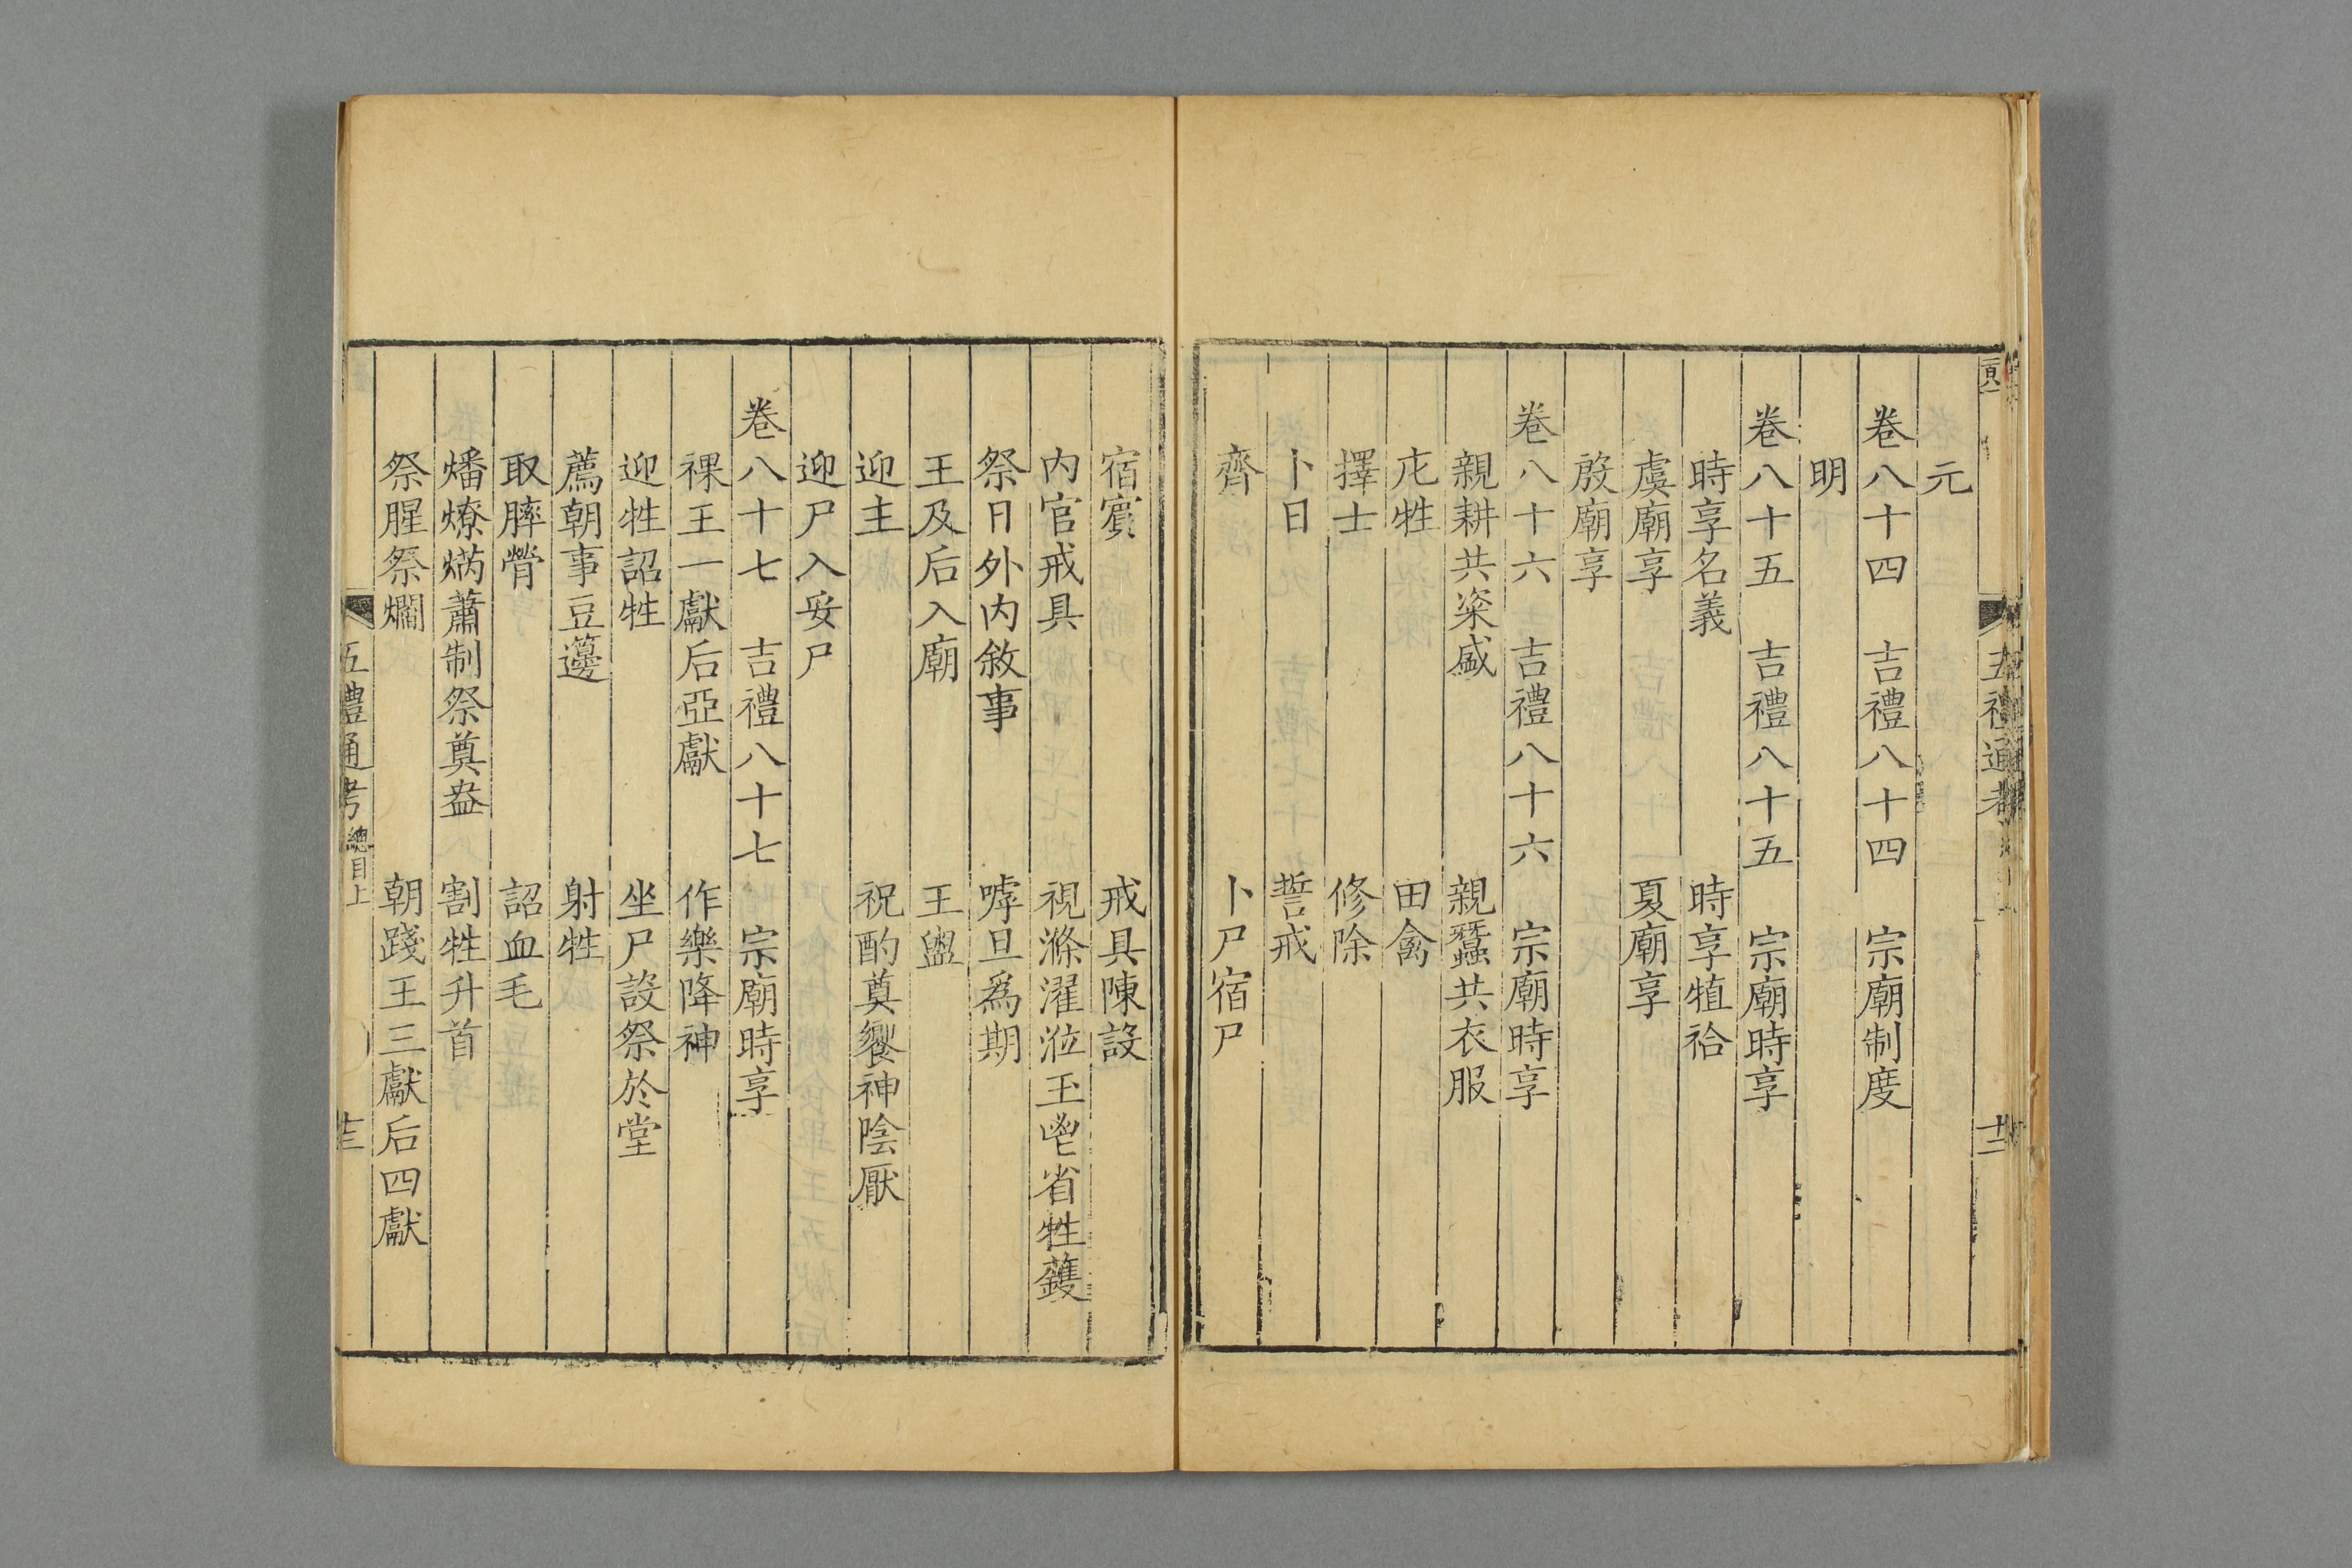 元
卷八十四　吉禮八十四　宗廟制度
明
卷八十五　吉禮八十五　宗廟時享
時享名義　時享犆祫
虞廟享　夏廟享
殷廟享
卷八十六　吉禮八十六　宗廟時享
親耕共粢盛　親蠶共衣服
庀牲　田禽
擇士　修除
卜日　誓戒
齊　卜尸宿尸
宿賓　戒具陳設
内官戒具　視滌濯涖玉鬯省牲鑊
祭日外内敘事　嘑旦爲期
王及后入廟　王盥
迎主　祝酌奠饗神陰厭
迎尸入妥尸
卷八十七　吉禮八十七　宗廟時享
祼王一獻后亞獻　作樂降神
迎牲詔牲　坐尸設祭於堂
薦朝事豆籩　射牲
取膟膋　詔血毛
燔燎焫蕭制祭奠盎　割牲升首
祭腥祭爓　朝踐王三獻后四獻
五禮通考 總目上